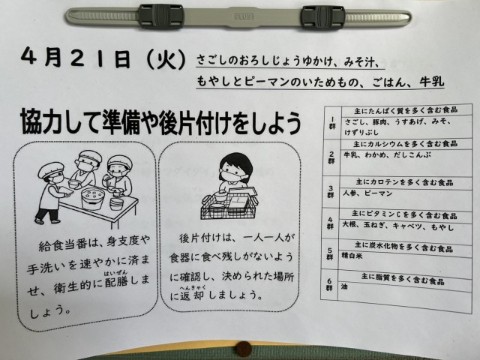 4月21日（火） さごしのおろしじょうゆかけ、みそ汁、
もやしとピーマンのいためもの、ごはん、牛乳
協力して準備や後片付けをしよう
給食当番は、身支度や
手洗いを速やかに済ま
せ、衛生的に配膳しま
はいぜん
しょう。
後片付けは、一人一人が
食器に食べ残しがないよう
に確認し、決められた場所
に返却しましょう。
へんきゃく
1群 主にたんぱく質を多く含む食品
さごし、豚肉、うすあげ、みそ、
けずりぶし
2群 主にカルシウムを多く含む食品
牛乳、わかめ、だしこんぶ
3群 主にカロテンを多く含む食品
人参、ピーマン
4群 主にビタミンCを多く含む食品
大根、玉ねぎ、キャベツ、もやし
5群 主に炭水化物を多く含む食品
精白米
6群 主に脂質を多く含む食品
油